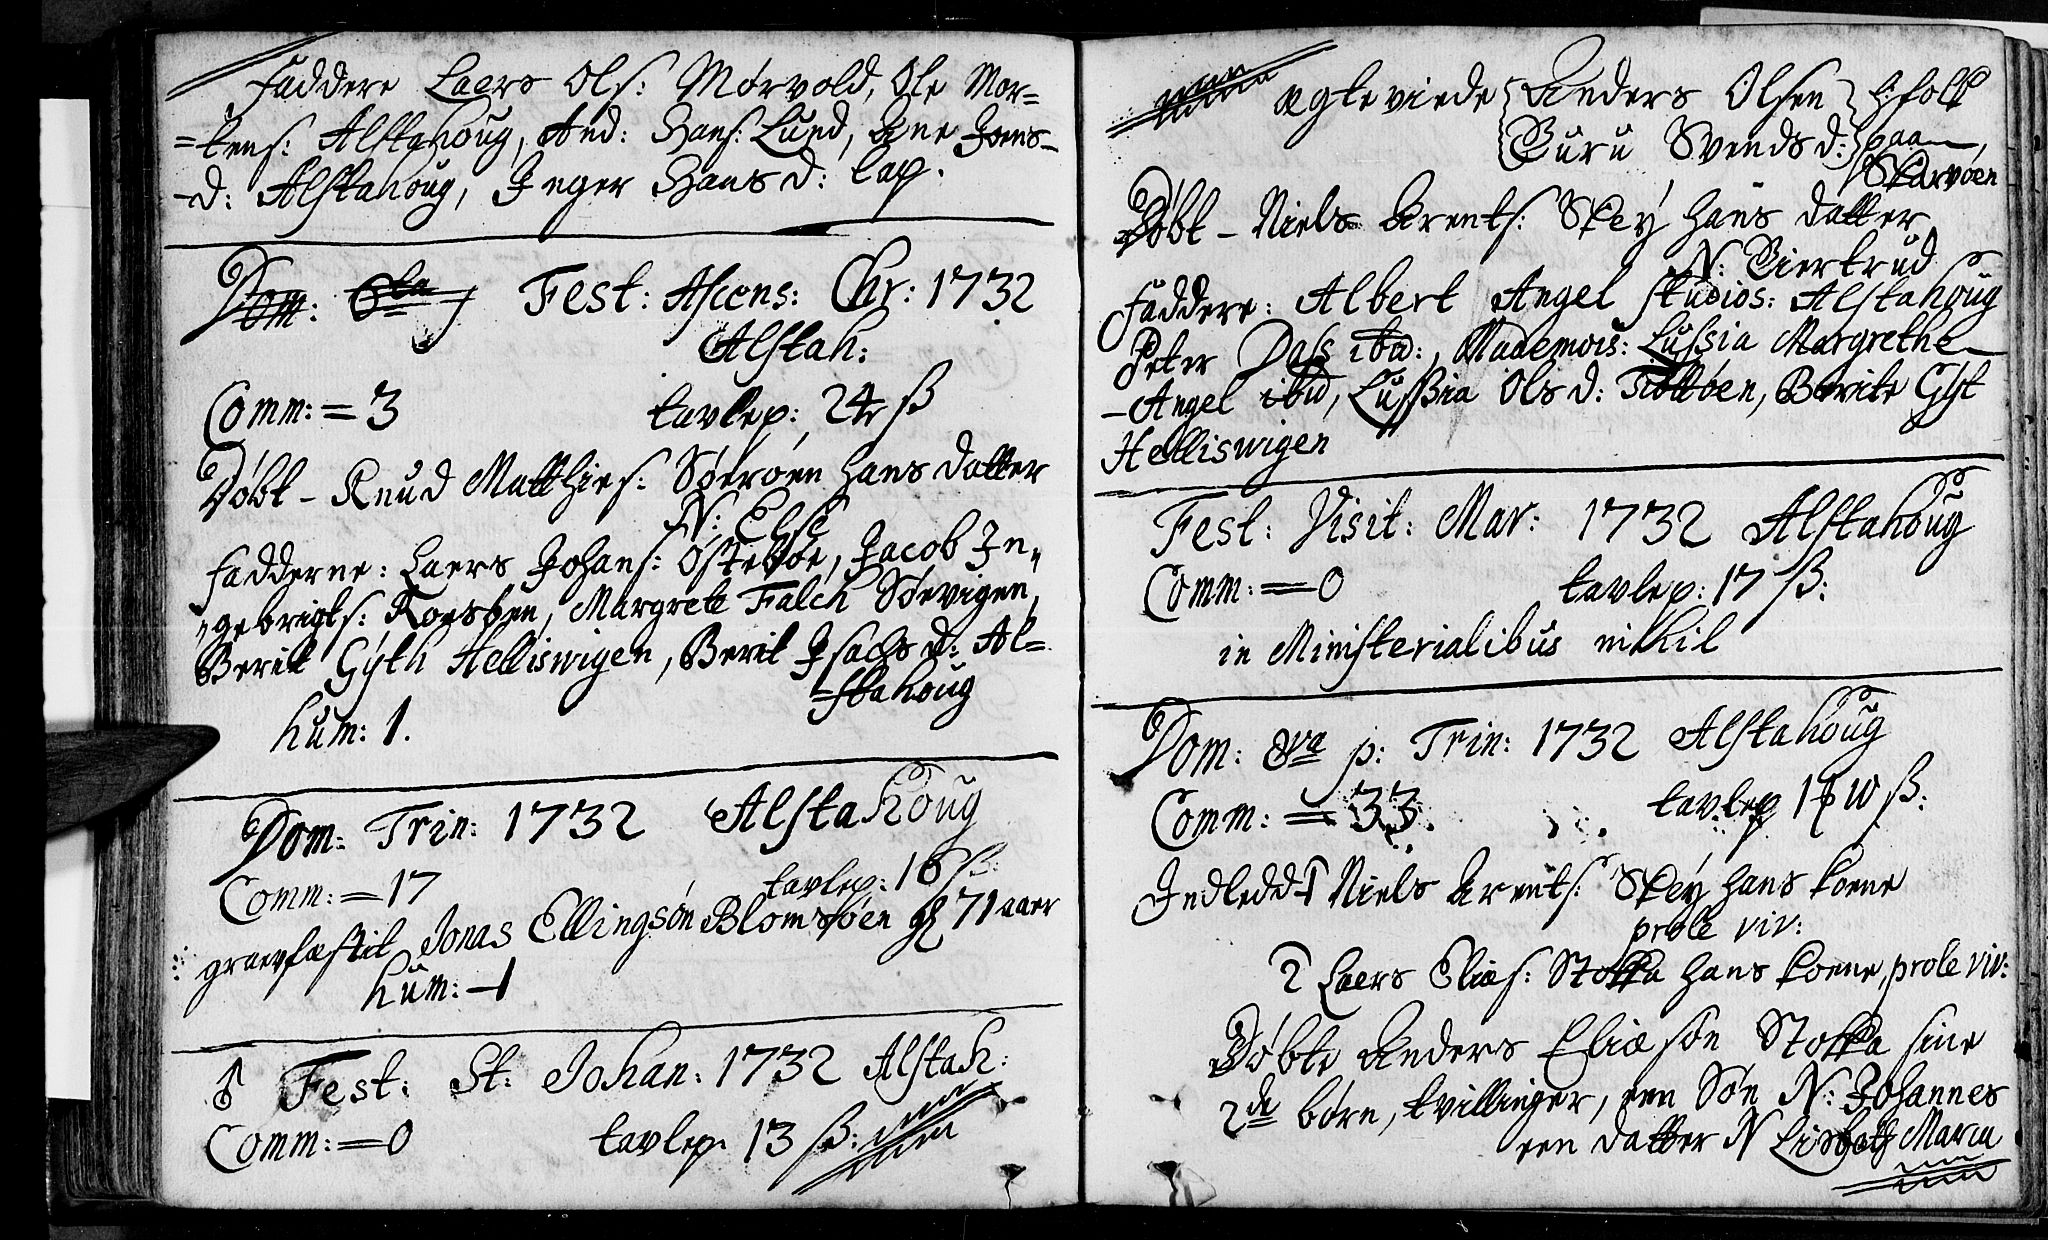 Faddere Laers Ols: Mørvold, Ole Mor=
=tens: Alstahoug, And: Hans: Lund, Ane Joens-
-d: Alstahoug, Inger Hansd: lap.
Dom: 6ta Fest: Ascens: Chr: 1732
Alstah:
Comm: = 3 tavlep: 24 ß
Døbt - Knud Matthies: Sørøen hans datter
N: Else
fadderne: Laers Johans: Østebøe, Jacob In,,
,,gebrigts: Rosøen, Margrete Falch Søevigen,
Berit Gÿth Helliswigen, Berit Isachsd: Al=
-stahoug
hum: 1.
Dom: Trin: 1732 Alstahoug
Comm: = 17 tavlep: 16 ß:
graevfæstit Jonas Ellingsøn Blomsøen gl 71 aaer
hum: - 1
♂ Fest: St: Johan: 1732 Alstah:
Comm: = 0 tavlep 13 ß:
ægteviede Anders Olsen
Guru Svendsd:
Efolk
paa
Skarvøen
Døbt - Niels Arents: Skeÿ hans datter
N: Giertrud
Faddere: Albert Angel Studios: Alstahoug
Peter Dass ibid:, Mademois: Lussia Margrethe
-Angel ibid, Lussia Olsd: Tiøttøen, Berite Gÿt
Helliswigen
Fest: Visit: Mar: 1732 Alstahoug
Comm: = 0 tavlep: 17 ß:
in Ministerialibus nihil
Dom: 8va p: Trin: 1732 Alstahoug
Comm: = 33. tavlep 1 10 ß:
Indledd 1 Niels Arents: Skeÿ hans kone
prole viv:
2 Laers Elias: Stokka hans kone, prole viv:
Døbte Anders Eliæsøn Stokka sine
2de børn, tvillinger, een Søn N: Johannes
een datter N Lisbeth Maria